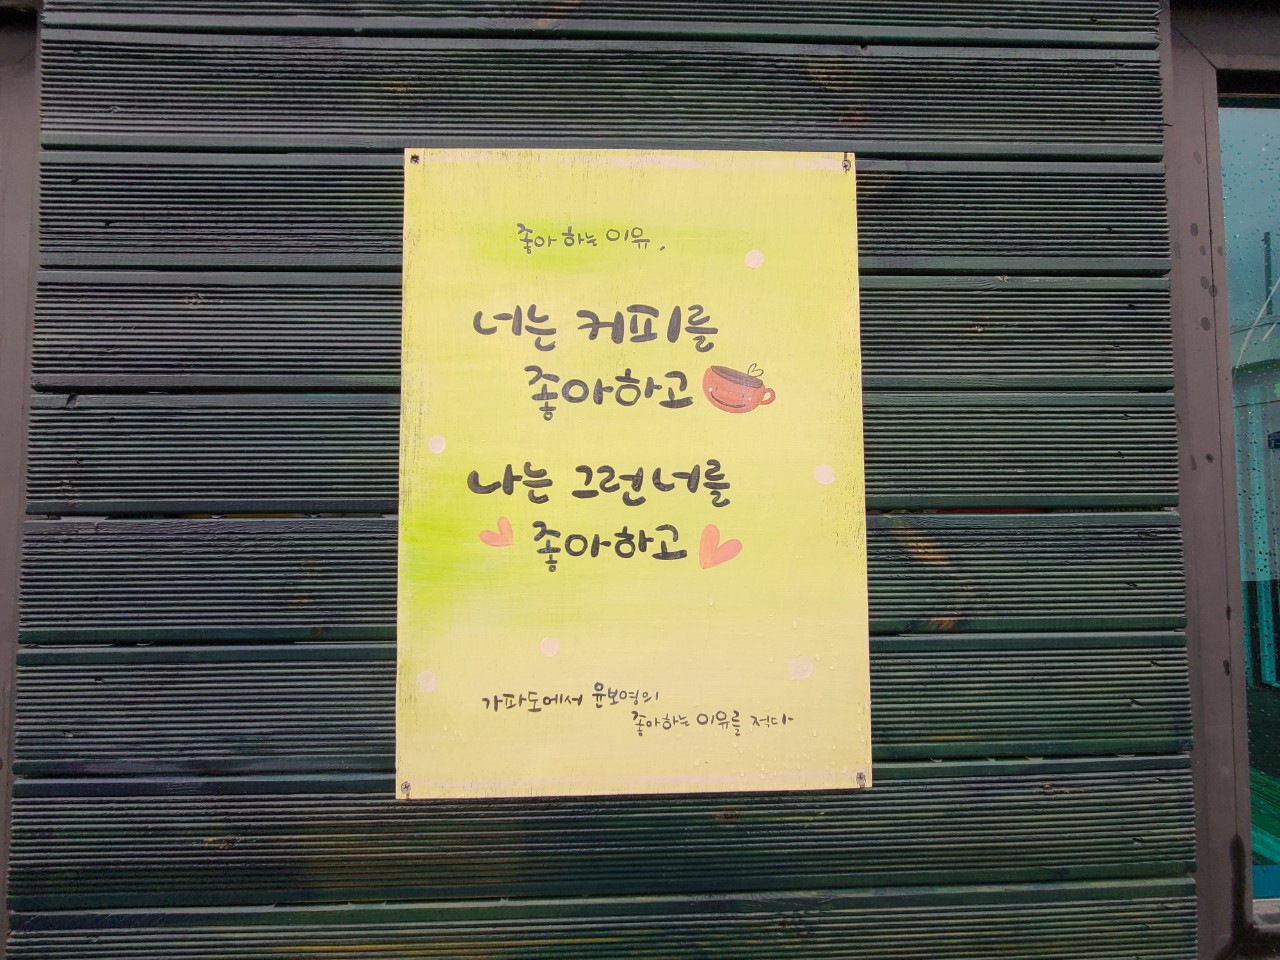 좋아하는 이유,
너는 커피를
좋아하고
나는 그런 너를
좋아하고
가파도에서 윤보영의
좋아하는 이유를 적다